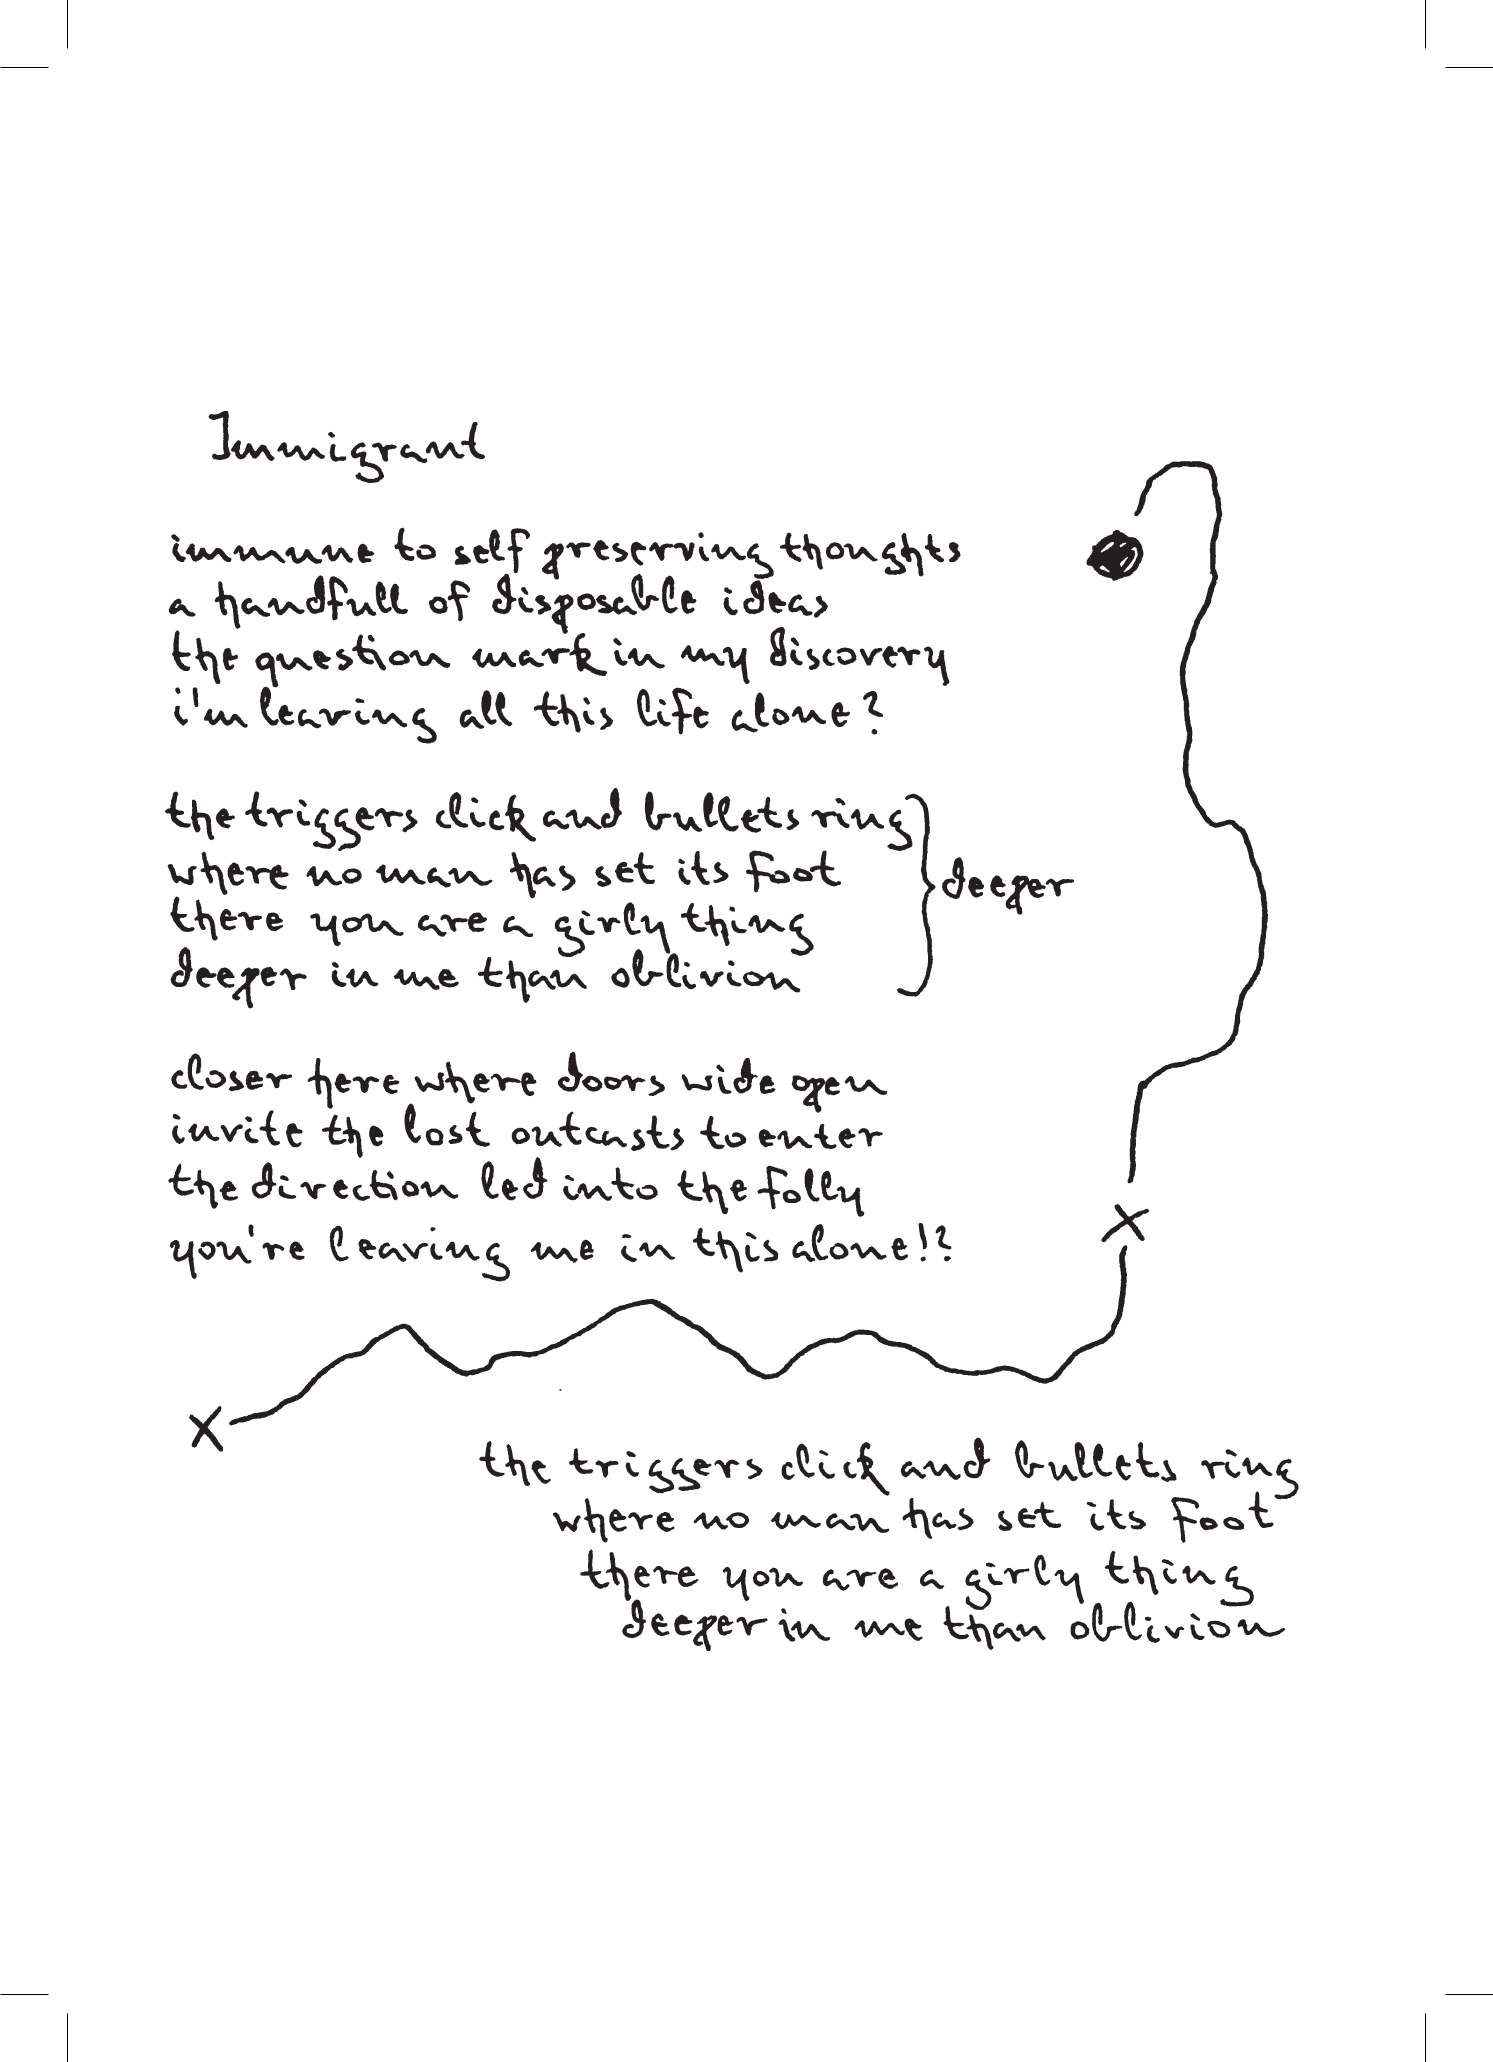 Immigrant
immune to self preserving thoughts
a handfull of disposable ideas
the question mark in my discovery
i'm leaving all this life alone?
the triggers click and bullets ring
where no man has set its foot
there you are a girly thing
deeper in me than oblivion
deeper
closer here where doors wide open
invite the lost outcasts to enter
the direction led into the folly
you're leaving me in this alone!?
the triggers click and bullets ring
where no man has set its foot
there you are a girly thing
deeper in me than oblivion